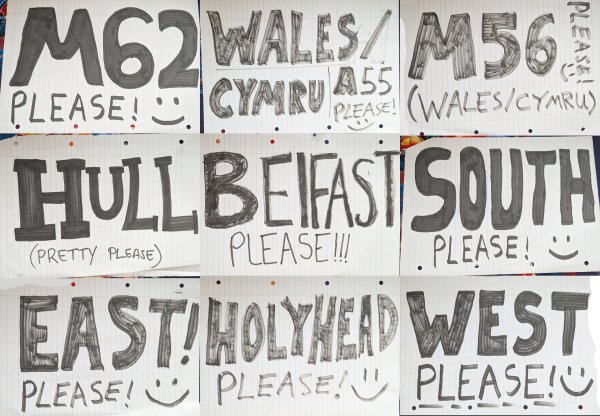 M62
PLEASE!
WALES/
CYMRU A55
PLEASE!
M56
PLEASE!
(WALES/CYMRU)
HULL
(PRETTY PLEASE)
BELFAST
PLEASE!!!
SOUTH
PLEASE!
EAST!
PLEASE!
HOLYHEAD
PLEASE!
WEST
PLEASE!